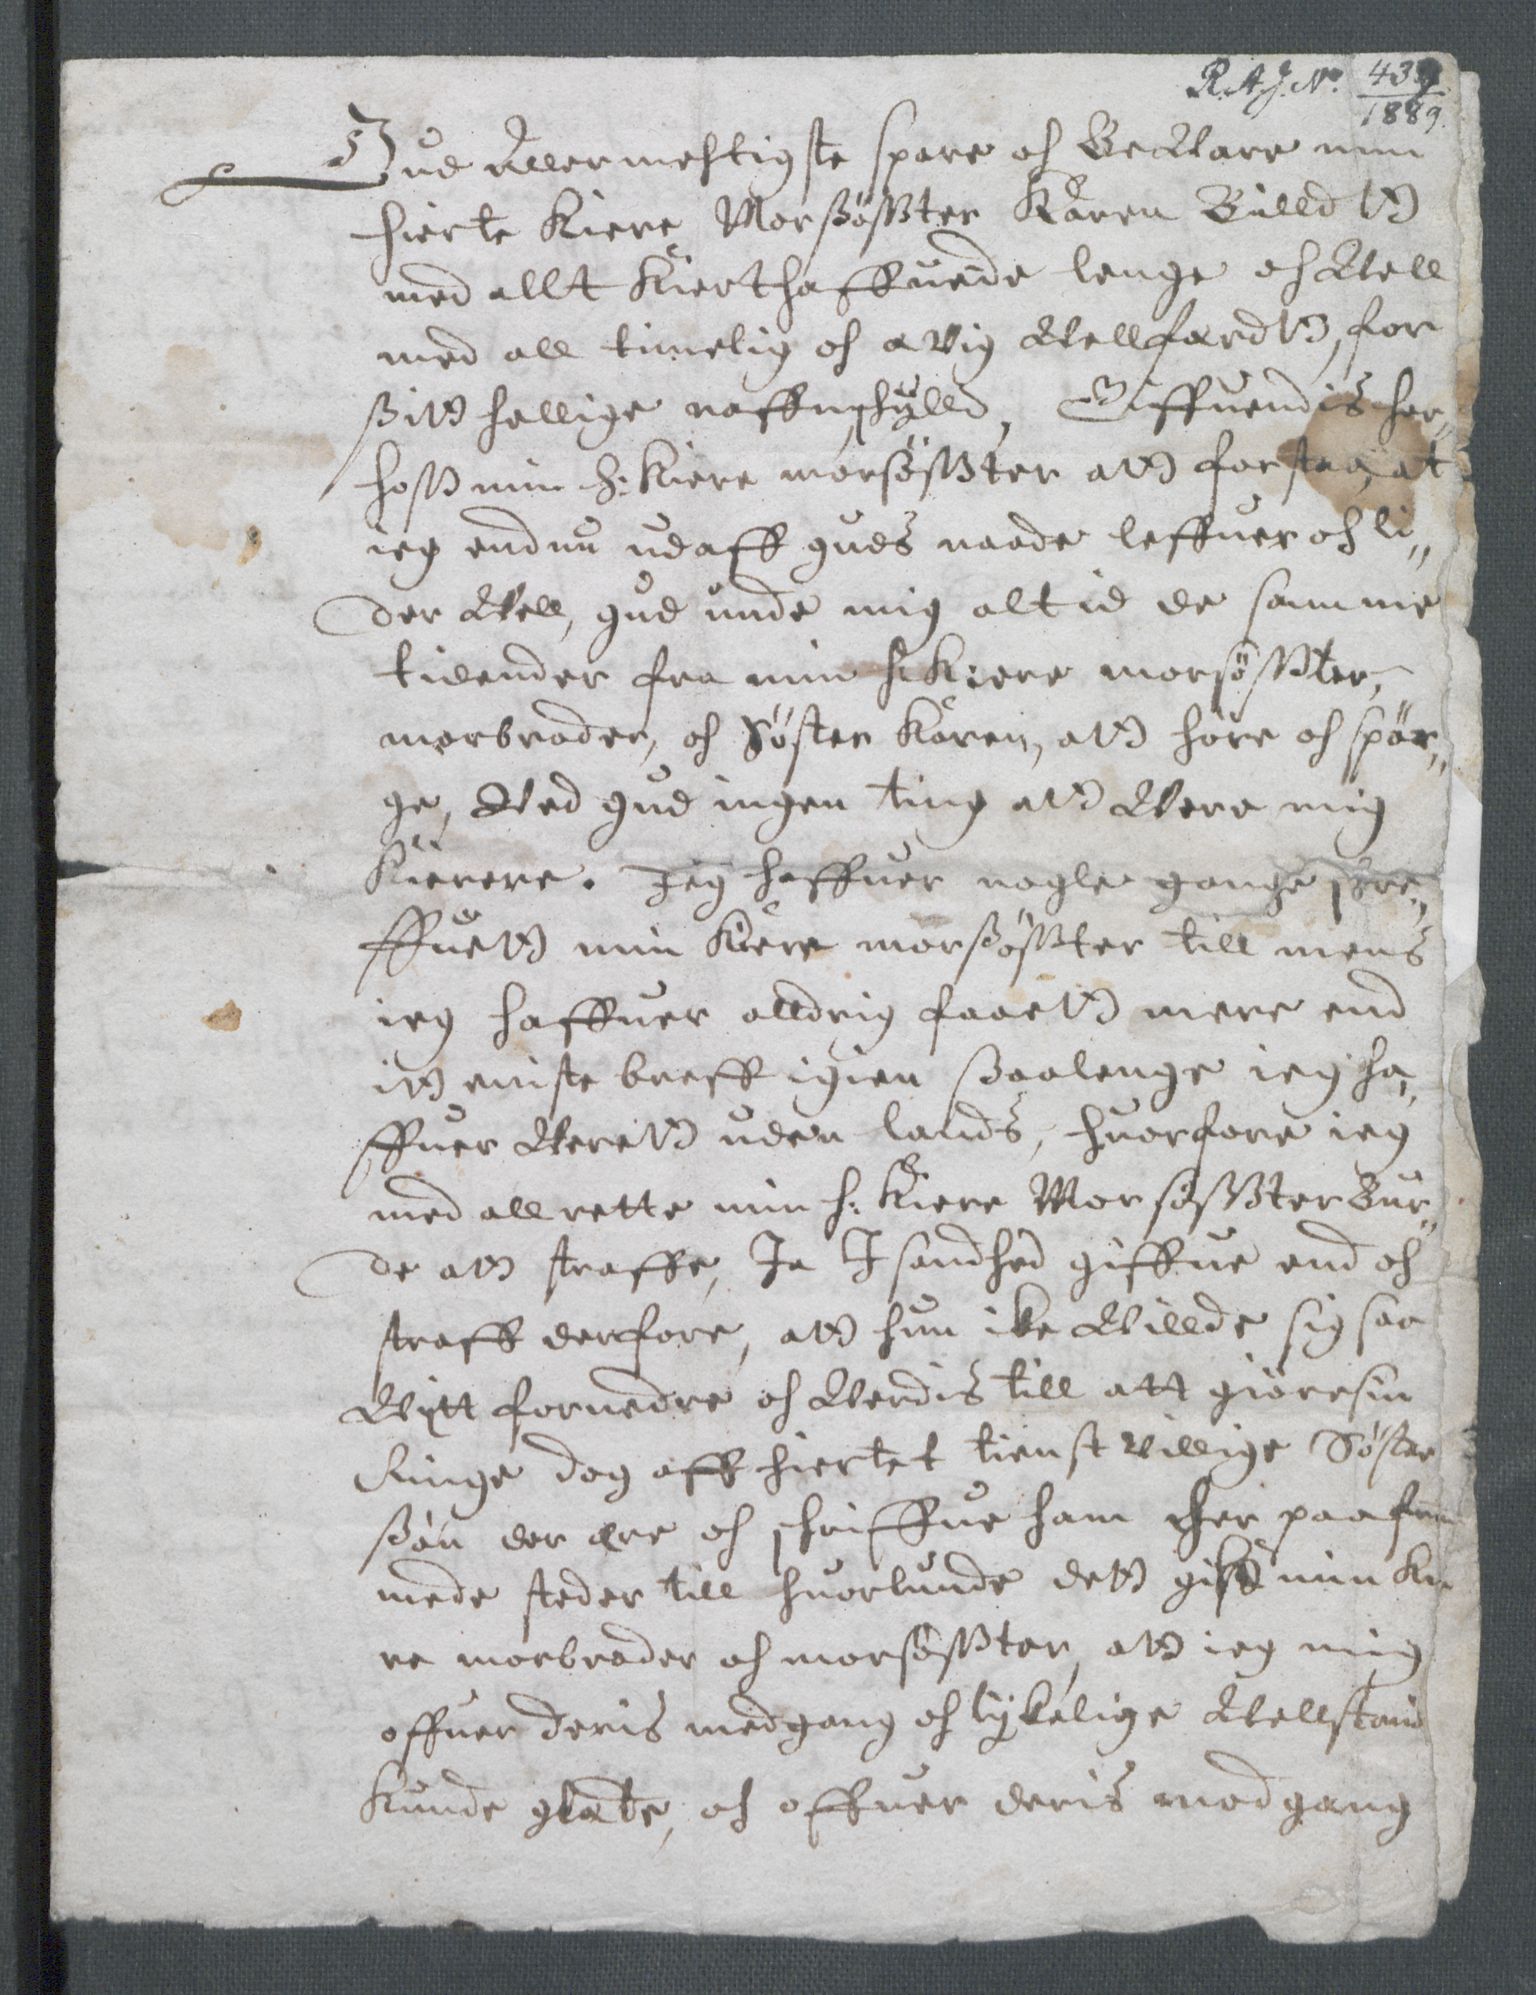 R. A. J. No. 439/1889.
Gud Allermechtigste spare och Beware min
hierte Kiere Morsøsster Karen Billdtt
med allt Kiert haffuende lenge och Well
med all timelig och ævig Wellfærdtt, for
sitt hellige naffns skylld, Giffuendis her„
hoss min h: Kiere morsøsster att forstaa, at
ieg endnu udaff guds naade leffuer och li„
der Well, gud unde mig altid de samme
tidender fra min h: Kiere morsøsster,
morbroder, och Søster Karen, att høre och spør„
ge, Wed gud ingen ting att Were mig
Kierere. Jeg haffuer nogle gange skre„
ffuett min Kiere morsøsster till mens
ieg haffuer alldrig faaett mere end
itt eniste breff igien saalenge ieg ha„
ffuer Werett uden lands, huorfore ieg
med all rette min h: Kiere Morsøsster Bur„
de att straffe, Ja I sandhed giffue end och
straff derfore, att hun ike Willde sig saa
Witt fornedre och Werdis till att giøre sin
Ringe dog aff hiertet tienst villige Søster
søn der ære och schriffue ham her paa frem
mede steder till huorlunde dett gik min Kie
re morbroder och morsøsster, att ieg mig
offuer deris medgang och lykelige Wellstand
Kunde glæde, och offuer deris modgang